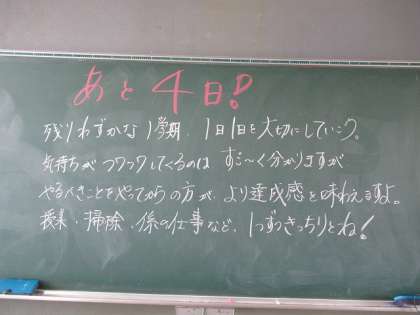 あと4日!
残りわずかな1学期、1日1日を大切にしていこう。
気持ちがワクワクしてくるのは すご〜く分かりますが
やるべきことをやってからの方が、より達成感を味わえますよ。
授業・掃除・係の仕事など、1つずつきっちりとね!